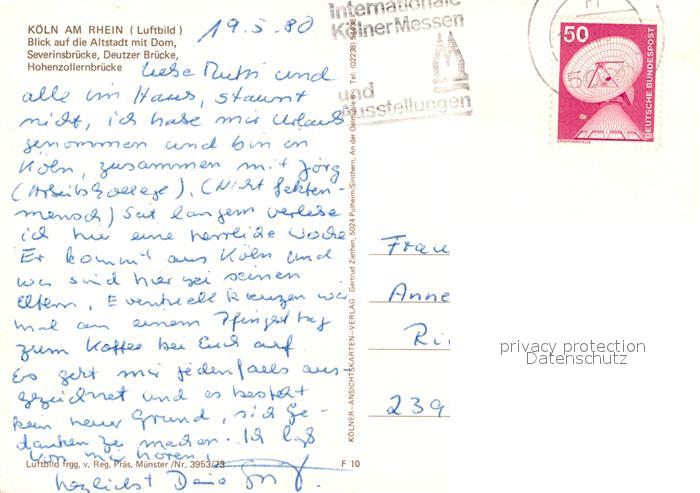 KÖLN AM RHEIN ( Luftbild )
Blick auf die Altstadt mit Dom,
Severinsbrücke, Deutzer Brücke,
Hohenzollernbrücke
19.5.80
Liebe Mutti und
alle im Haus, staunt
nicht, ich habe mir Urlaub
genommen und bin in
Köln, zusammen mit Jörg
(Arbeitskollege). (Nicht Sekten-
mensch) Seit langem verlebe
ich hier eine herrliche Woche
Er kommt aus Köln und
wir sind hier bei seinen
Eltern, Eventuell kreuzen wir
mal an einem Pfingsttag
zum Kaffee bei Euch auf.
Es geht mir jedenfalls aus-
gezeichnet und es besteht
kein neuer Grund, sich Ge-
danken zu machen. Ich laß
von mir hören,
Luftbild frgg. v. Reg. Präs. Münster /Nr. 3953/73
F 10
herzlichst
KÖLNER-ANSICHTSKARTEN-VERLAG Gertrud Ziethen, 5024 Pulheim/Sinthern, An der Oelmühle 6 Tel. (02238)
Internationale
Kölner Messen
und
Ausstellungen
50
DEUTSCHE BUNDESPOST
ERDFUNKSTELLE
Frau
Anne
Ri
239
privacy protection
Datenschutz